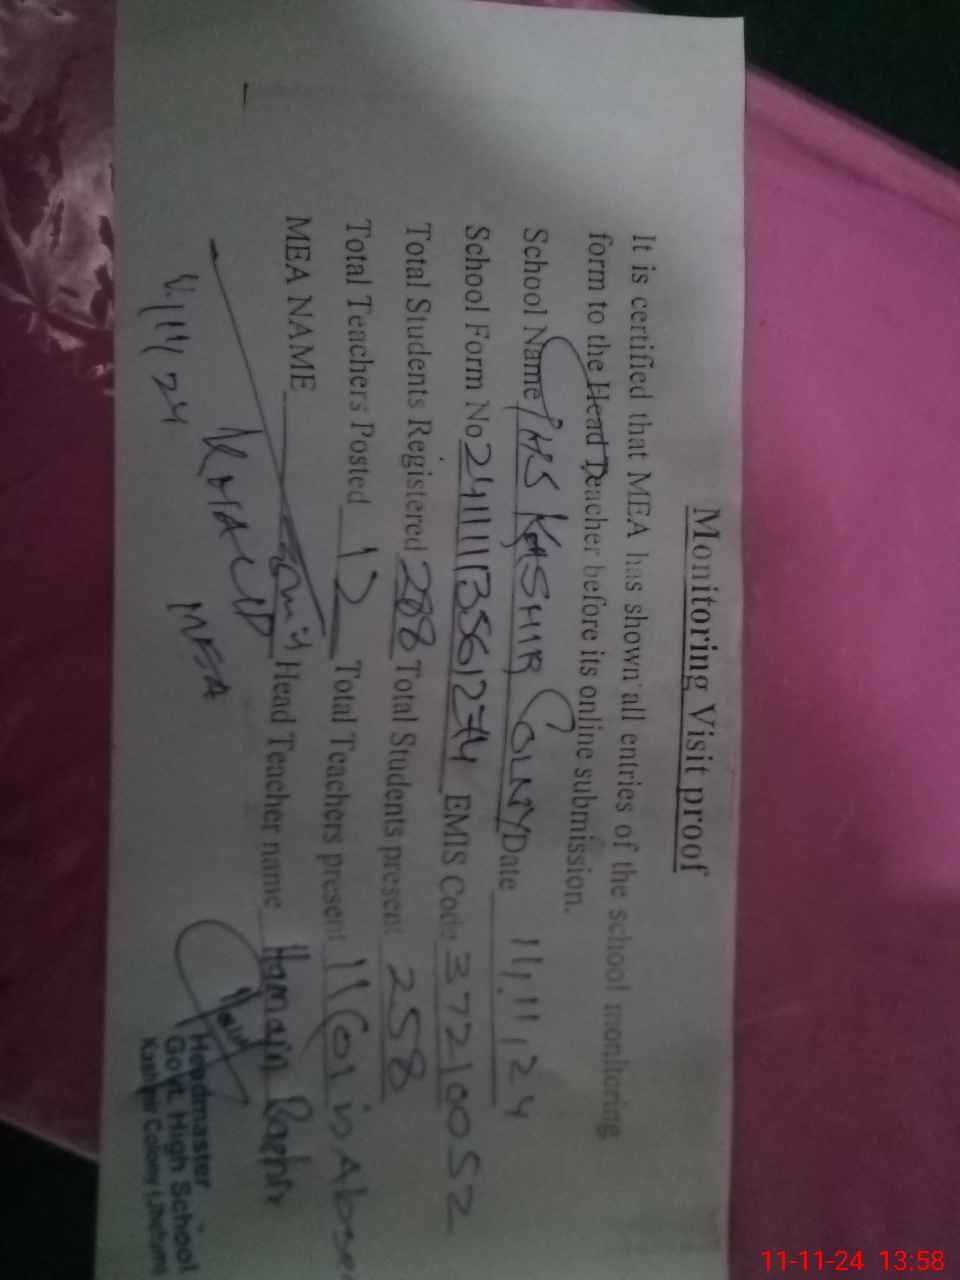 Monitoring Visit proof
It is certified that MEA has shown all entries of the school monitoring
form to the Head Teacher before its online submission.
School Name GHS KASHIR COLNY Date 11,11,24
School Form No EMIS Code 37210052
Total Students Registered 288 Total Students present 258
Total Teachers Posted 12 Total Teachers present 11 (01 is Absen
MEA NAME Head Teacher name
KHALID
MEA
11/11/24
Headmaster
Govt. High School
Kashmir Colony
11-11-24 13:58